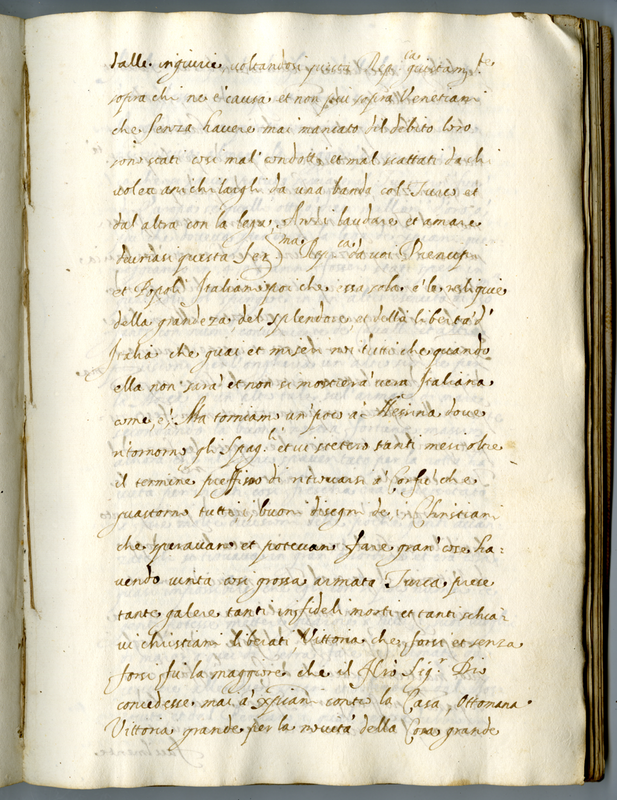 dalle ingiurie, voltandosi questa Rep.ca quietam.te
sopra chi ne è causa et non più sopra Venetiani
che senza havere mai mancato del debito loro
sono stati cosi mal' condotti, et mal trattati da chi
da una banda col Turco et
dal altra con la lega. Anzi laudare et amare
devriasi questa Ser.ma Rep.ca da voi Prencipi
et Popoli Italiani poi che essa sola è le reliquie
della grandeza del splendore, et della libertà d'
Italia che guai et miseri noi tutti che quando
ella non sarà et non si mostrerà vera Italiana
come è. Ma torniam un' poco a Messina dove
ritornorn gli Spag.li et vi stetero tanti mesi oltre
il termine prefisso di ritrovarsi à Corfù che
guastorno tutti i buon disegni de i Christiani
che speravano et potevan fare gran' cose ha:
vendo vinta cosi grossa armata Turca prese
tante galere tanti infideli morti et tanti schia:
vi christiani liberati Vittoria che forsi et senza
forsi fu la maggiore che il Sig.r Dio
concedesse mai à Xpiani contr la Casa Ottomana
Vittoria grande per la novità della Cosa grande